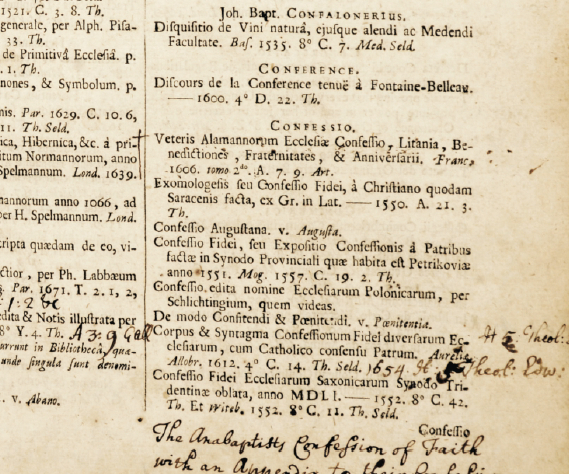 1521. C. 3. 8. Th.
generale, per Alph. Pisa-
33. Th.
de Primitivâ Ecclesiâ. p.
1. Th.
nones, & Symbolum. p.
nis. Par. 1629. C. 10. 6,
11. Th. Seld.
ica, Hibernica, &c. à pri-
itum Normannorum, anno
Spelmannum. Lond. 1639.
mannorum anno 1066, ad
per H. Spelmannum. Lond.
cripta quædam de eo, vi-
ctior, per Ph. Labbæum
Par. 1671. T. 2. 1, 2,
1: 2 &c
edita & Notis illustrata per
8° Y. 4. Th. A 3: 9
currunt in Bibliothecâ, qua-
unde singula sunt denomi-
. v. Albano.
Joh. Bapt. CONFALONERIUS.
Disquisitio de Vini naturâ, ejusque alendi ac Medendi
Facultate. Bas. 1535. 8° C. 7. Med. Seld.
CONFERENCE.
Discours de la Conference tenuë à Fontaine-Belleau.
—— 1600. 4° D. 22. Th.
CONFESSIO.
Veteris Alamannorum Ecclesiæ Confessio, Litania, Be-
nedictiones, Fraternitates, & Anniversarii. Franc.
1606. tomo 2do. A. 7. 9. Art.
Exomologesis seu Confessio Fidei, à Christiano quodam
Saracenis facta, ex Gr. in Lat. —— 1550. A. 21. 3.
Th.
Confessio Augustana. v. Augusta.
Confessio Fidei, seu Expositio Confessionis à Patribus
factæ in Synodo Provinciali quæ habita est Petrikoviæ
anno 1551. Mog. 1557. C. 19. 2. Th.
Confessio edita nomine Ecclesiarum Polonicarum, per
Schlichtingium, quem videas.
De modo Confitendi & Pœnitendi. v. Pœnitentia.
Corpus & Syntagma Confessionum Fidei diversarum Ec- H 5 Theol:
clesiarum, cum Catholico consensu Patrum. Aureliæ
Allobr. 1612. 4° C. 14. Th. Seld. 1654. H: 5 Theol: Edw:
Confessio Fidei Ecclesiarum Saxonicarum Synodo Tri-
dentinæ oblata, anno MDLI. —— 1552. 8° C. 42.
Th. Et Witeb. 1552. 8° C. 11. Th. Seld.
Confessio
The Anabaptists Confession of Faith
with an Appendix to their